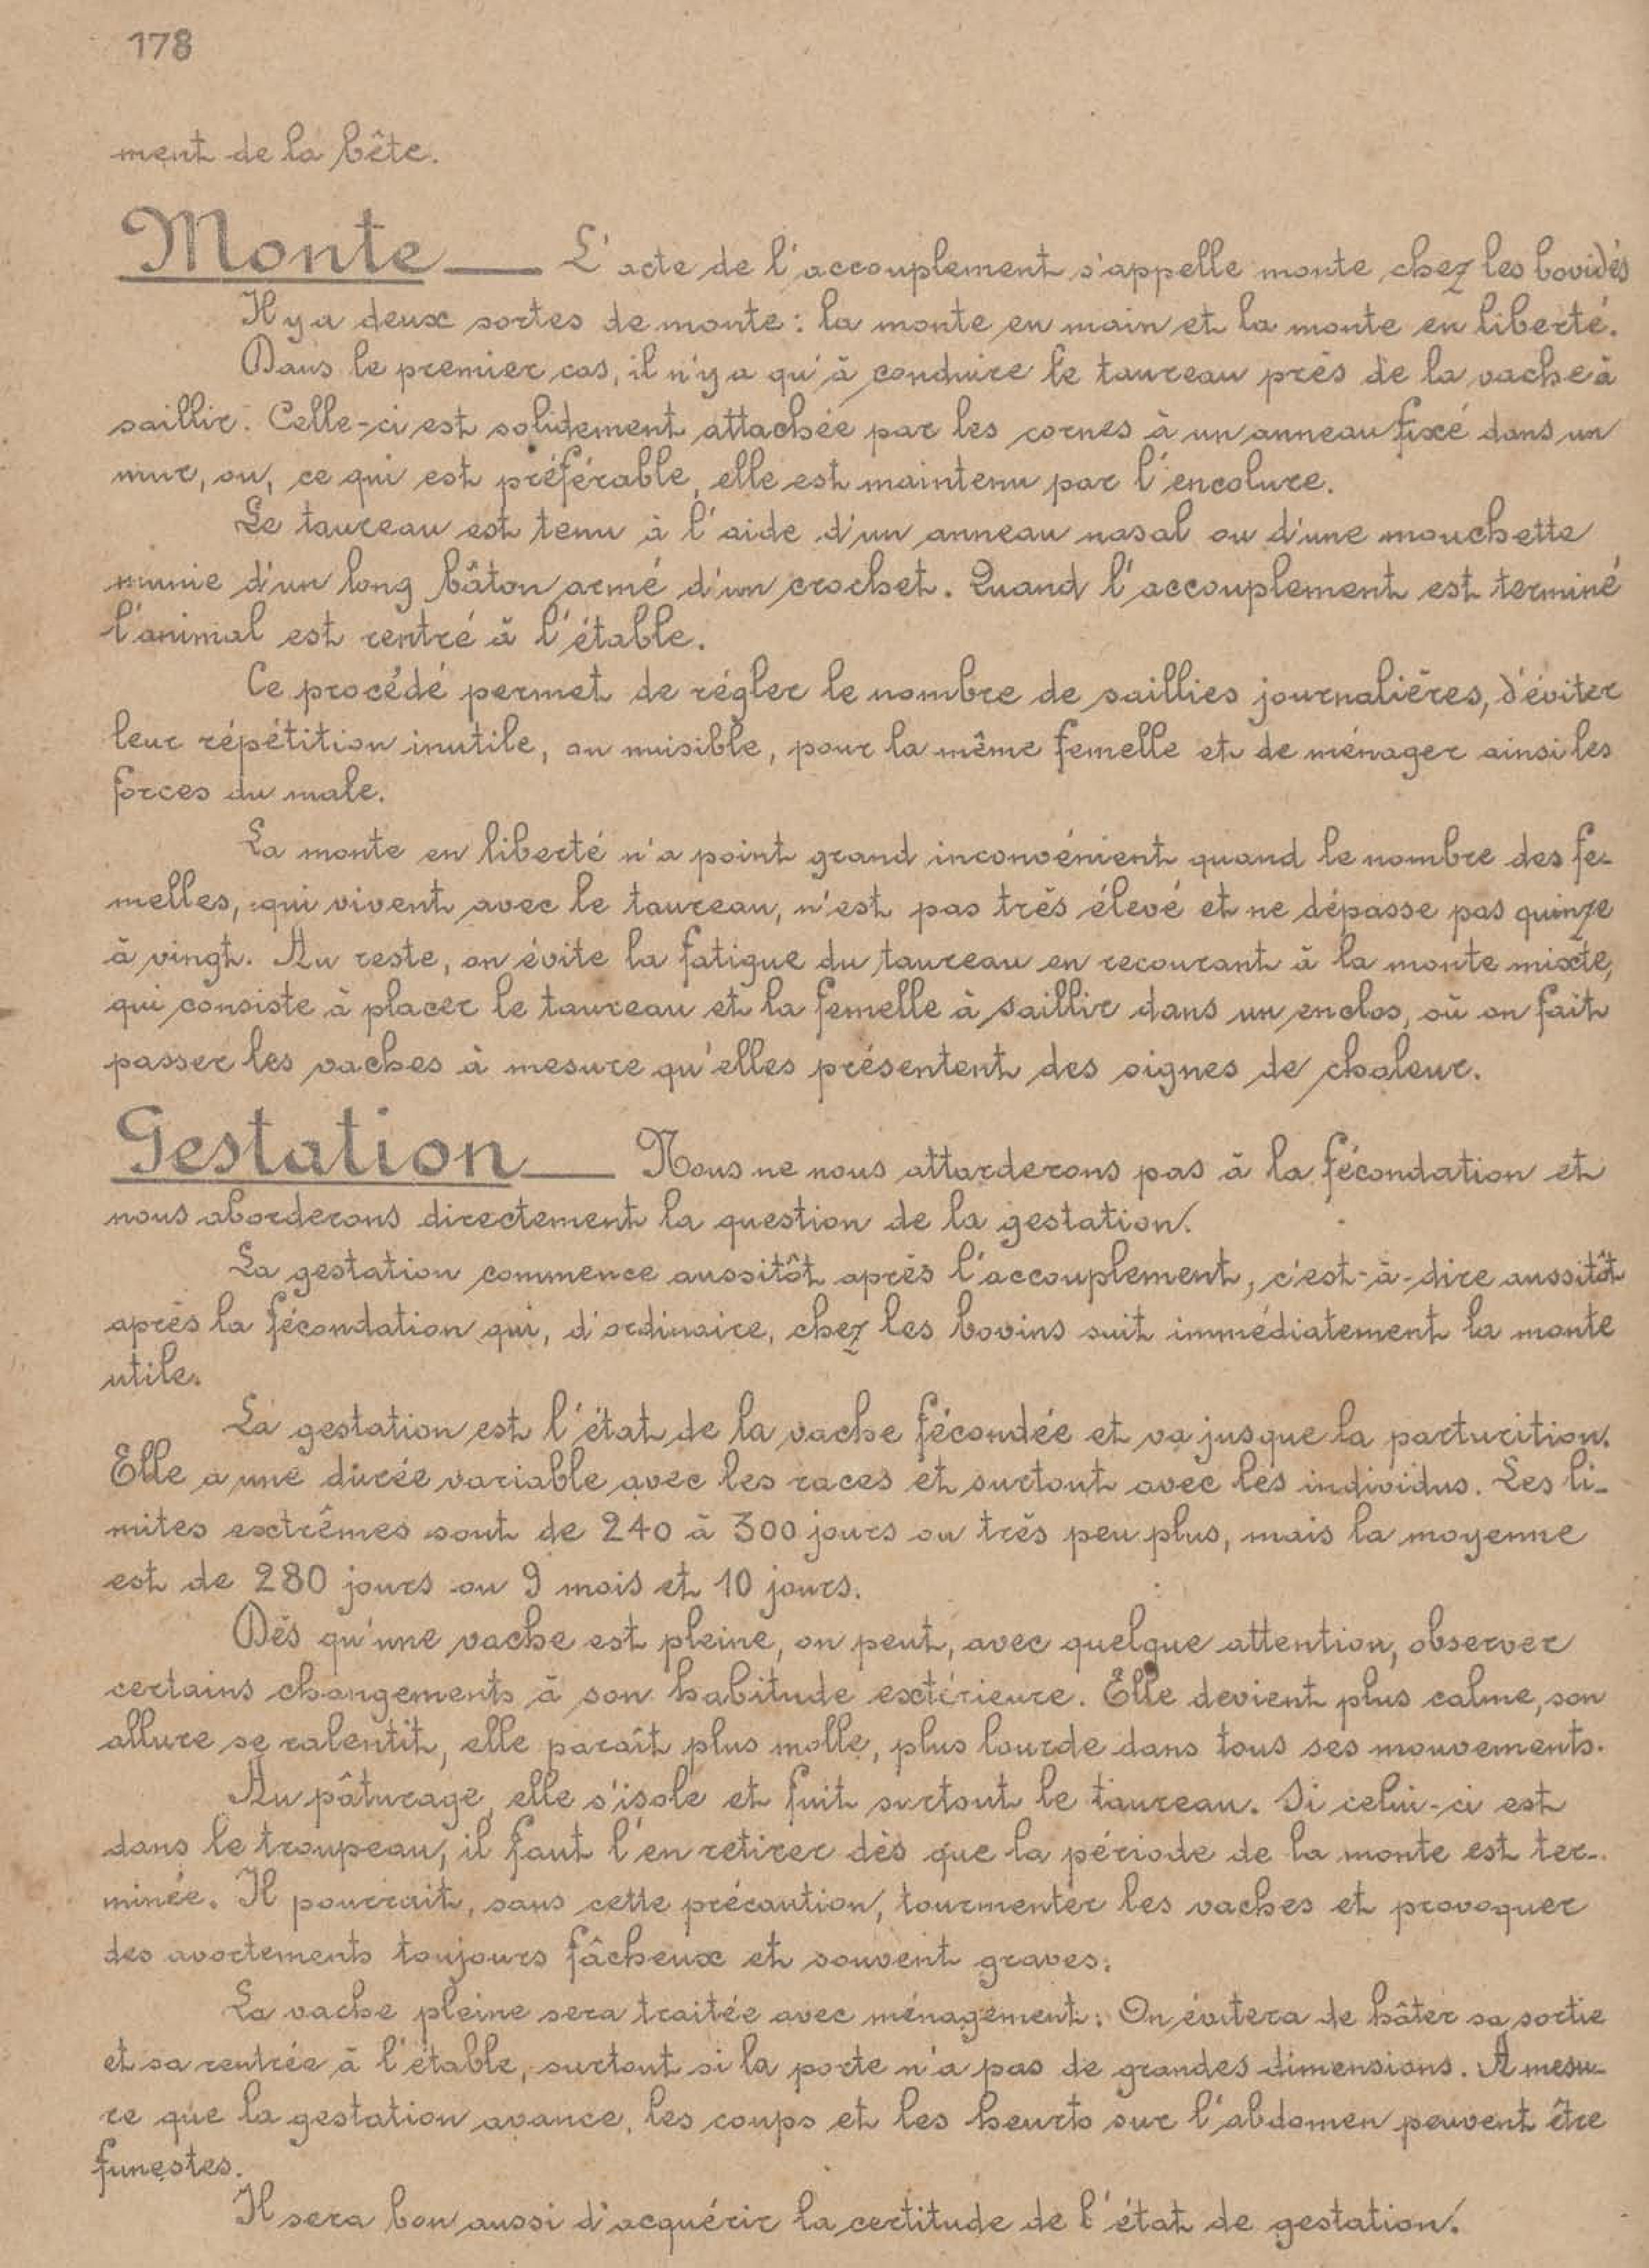 178
ment de la bête.
Monte — L'acte de l'accouplement s'appelle monte chez les bovidés
Il y a deux sortes de monte : la monte en main et la monte en liberté.
Dans le premier cas, il n'y a qu'à conduire le taureau près de la vache à
saillir. Celle-ci est solidement attachée par les cornes à un anneau fixé dans un
mur, ou, ce qui est préférable, elle est maintenu par l'encolure.
Le taureau est tenu à l'aide d'un anneau nasal ou d'une mouchette
munie d'un long bâton armé d'un crochet. Quand l'accouplement est terminé
l'animal est rentré à l'étable.
Ce procédé permet de régler le nombre de saillies journalières, d'éviter
leur répétition inutile, ou nuisible, pour la même femelle et de ménager ainsi les
forces du male.
La monte en liberté n'a point grand inconvénient quand le nombre des fe-
melles, qui vivent avec le taureau, n'est pas très élevé et ne dépasse pas quinze
à vingt. Au reste, on évite la fatigue du taureau en recourant à la monte mixte,
qui consiste à placer le taureau et la femelle à saillir dans un enclos, où on fait
passer les vaches à mesure qu'elles présentent des signes de chaleur.
Gestation — Nous ne nous attarderons pas à la fécondation et
nous aborderons directement la question de la gestation.
La gestation commence aussitôt après l'accouplement, c'est-à-dire aussitôt
après la fécondation qui, d'ordinaire, chez les bovins suit immédiatement la monte
utile.
La gestation est l'état de la vache fécondée et va jusque la parturition.
Elle a une durée variable avec les races et surtout avec les individus. Les li-
mites extrêmes sont de 240 à 300 jours ou très peu plus, mais la moyenne
est de 280 jours ou 9 mois et 10 jours.
Dès qu'une vache est pleine, on peut, avec quelque attention, observer
certains changements à son habitude extérieure. Elle devient plus calme, son
allure se ralentit, elle paraît plus molle, plus lourde dans tous ses mouvements.
Au pâturage, elle s'isole et fuit surtout le taureau. Si celui-ci est
dans le troupeau, il faut l'en retirer dès que la période de la monte est ter-
minée. Il pourrait, sans cette précaution, tourmenter les vaches et provoquer
des avortements toujours fâcheux et souvent graves.
La vache pleine sera traitée avec ménagement : On évitera de hâter sa sortie
et sa rentrée à l'étable, surtout si la porte n'a pas de grandes dimensions. A mesu-
re que la gestation avance, les coups et les heurts sur l'abdomen peuvent être
funestes.
Il sera bon aussi d'acquérir la certitude de l'état de gestation.